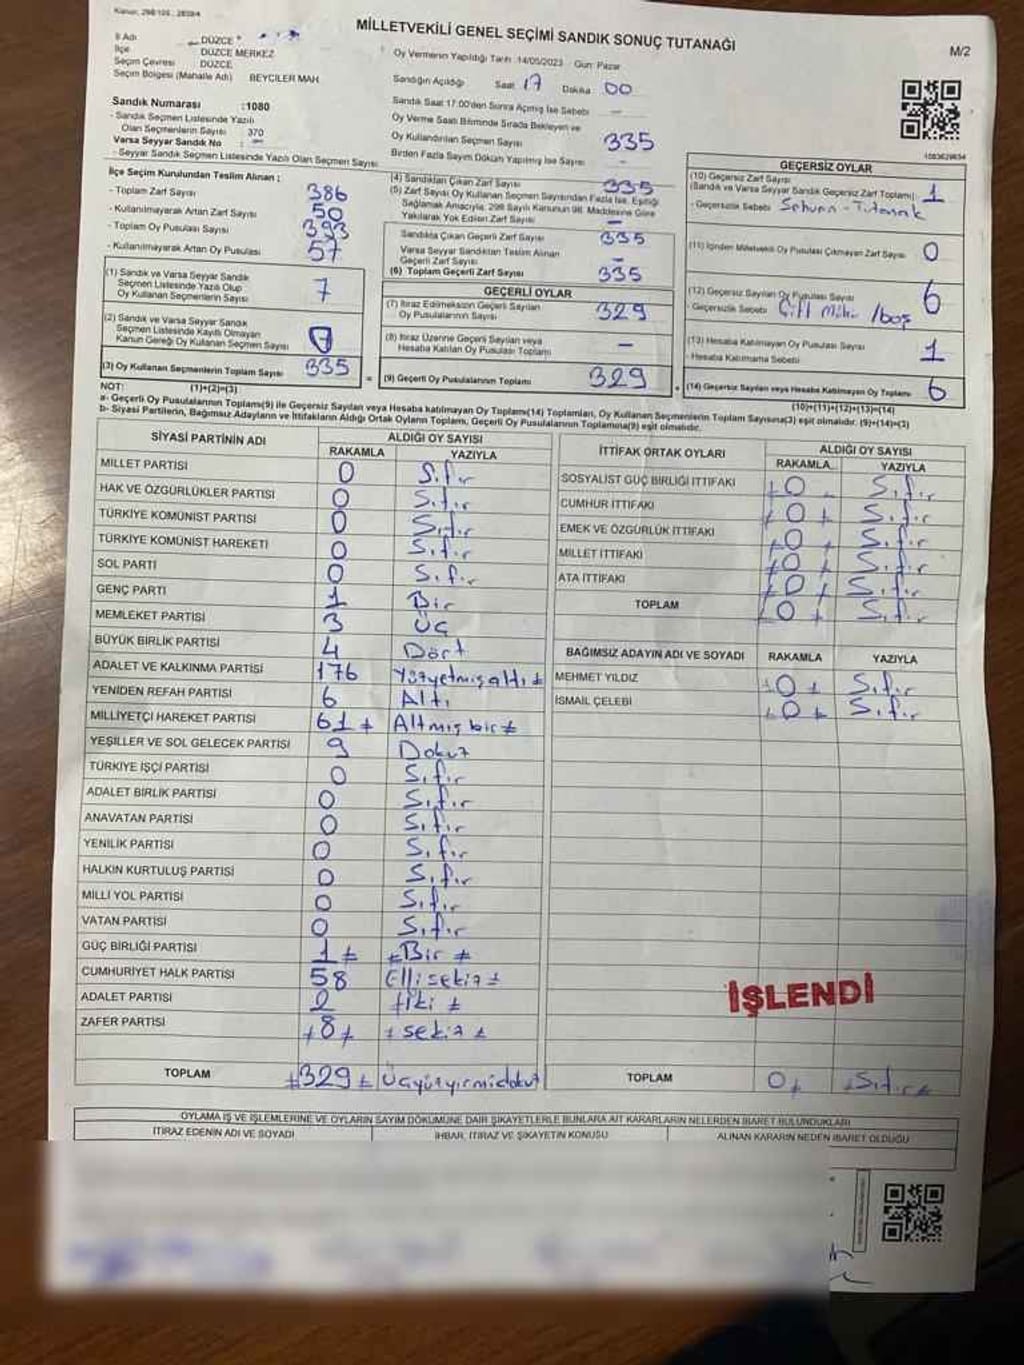 Kanun: 298/105, 2839/4
MİLLETVEKİLİ GENEL SEÇİMİ SANDIK SONUÇ TUTANAĞI
M/2
İl Adı DÜZCE
İlçe DÜZCE MERKEZ
Seçim Çevresi DÜZCE
Seçim Bölgesi (Mahalle Adı) BEYCİLER MAH.
Oy Vermenin Yapıldığı Tarih :14/05/2023 Gün: Pazar
Sandığın Açıldığı Saat 17 Dakika 00
Sandık Saat 17:00'den Sonra Açılmış İse Sebebi —
Oy Verme Saati Bitiminde Sırada Bekleyen ve
Oy Kullandırılan Seçmen Sayısı 335
Birden Fazla Sayım Döküm Yapılmış İse Sayısı -
Sandık Numarası :1080
- Sandık Seçmen Listesinde Yazılı
Olan Seçmenlerin Sayısı 370
Varsa Seyyar Sandık No : —
- Seyyar Sandık Seçmen Listesinde Yazılı Olan Seçmen Sayısı
İlçe Seçim Kurulundan Teslim Alınan :
- Toplam Zarf Sayısı 386
- Kullanılmayarak Artan Zarf Sayısı 50
- Toplam Oy Pusulası Sayısı 393
- Kullanılmayarak Artan Oy Pusulası 57
(1) Sandık ve Varsa Seyyar Sandık
Seçmen Listesinde Yazılı Olup
Oy Kullanan Seçmenlerin Sayısı 7
(2) Sandık ve Varsa Seyyar Sandık
Seçmen Listesinde Kayıtlı Olmayan
Kanun Gereği Oy Kullanan Seçmen Sayısı
(3) Oy Kullanan Seçmenlerin Toplam Sayısı 335
(4) Sandıktan Çıkan Zarf Sayısı 335
(5) Zarf Sayısı Oy Kullanan Seçmen Sayısından Fazla İse, Eşitliği
Sağlamak Amacıyla, 298 Sayılı Kanunun 98. Maddesine Göre
Yakılarak Yok Edilen Zarf Sayısı —
Sandıkta Çıkan Geçerli Zarf Sayısı 335
Varsa Seyyar Sandıktan Teslim Alınan
Geçerli Zarf Sayısı -
(6) Toplam Geçerli Zarf Sayısı 335
GEÇERLİ OYLAR
(7) İtiraz Edilmeksizin Geçerli Sayılan
Oy Pusulalarının Sayısı 329
(8) İtiraz Üzerine Geçerli Sayılan veya
Hesaba Katılan Oy Pusulası Toplamı —
= (9) Geçerli Oy Pusulalarının Toplamı 329
1083629834
GEÇERSİZ OYLAR
(10) Geçersiz Zarf Sayısı
(Sandık ve Varsa Seyyar Sandık Geçersiz Zarf Toplamı) 1
- Geçersizlik Sebebi
(11) İçinden Milletvekili Oy Pusulası Çıkmayan Zarf Sayısı 0
(12) Geçersiz Sayılan Oy Pusulası Sayısı 6
- Geçersizlik Sebebi Çift Mühür /boş
(13) Hesaba Katılmayan Oy Pusulası Sayısı 1
- Hesaba Katılmama Sebebi
+ (14) Geçersiz Sayılan veya Hesaba Katılmayan Oy Toplamı 6
NOT: (1)+(2)=(3)
(10)+(11)+(12)+(13)=(14)
a- Geçerli Oy Pusulalarının Toplamı(9) ile Geçersiz Sayılan veya Hesaba katılmayan Oy Toplamı(14) Toplamları, Oy Kullanan Seçmenlerin Toplam Sayısına(3) eşit olmalıdır. (9)+(14)=(3)
b- Siyasi Partilerin, Bağımsız Adayların ve İttifakların Aldığı Ortak Oyların Toplamı, Geçerli Oy Pusulalarının Toplamına(9) eşit olmalıdır.
SİYASİ PARTİNİN ADI ALDIĞI OY SAYISI
RAKAMLA YAZIYLA
MİLLET PARTİSİ 0 Sıfır
HAK VE ÖZGÜRLÜKLER PARTİSİ 0 Sıfır
TÜRKİYE KOMÜNİST PARTİSİ 0 Sıfır
TÜRKİYE KOMÜNİST HAREKETİ 0 Sıfır
SOL PARTİ 0 Sıfır
GENÇ PARTİ 1 Bir
MEMLEKET PARTİSİ 3 Üç
BÜYÜK BİRLİK PARTİSİ 4 Dört
ADALET VE KALKINMA PARTİSİ 176 Yüzyetmişaltı
YENİDEN REFAH PARTİSİ 6 Altı
MİLLİYETÇİ HAREKET PARTİSİ 61 Altmışbir
YEŞİLLER VE SOL GELECEK PARTİSİ 9 Dokuz
TÜRKİYE İŞÇİ PARTİSİ 0 Sıfır
ADALET BİRLİK PARTİSİ 0 Sıfır
ANAVATAN PARTİSİ 0 Sıfır
YENİLİK PARTİSİ 0 Sıfır
HALKIN KURTULUŞ PARTİSİ 0 Sıfır
MİLLİ YOL PARTİSİ 0 Sıfır
VATAN PARTİSİ 0 Sıfır
GÜÇ BİRLİĞİ PARTİSİ 1 Bir
CUMHURİYET HALK PARTİSİ 58 Ellisekiz
ADALET PARTİSİ 2 İki
ZAFER PARTİSİ 8 sekiz
TOPLAM 329 Üçyüzyirmidokuz
İTTİFAK ORTAK OYLARI ALDIĞI OY SAYISI
RAKAMLA YAZIYLA
SOSYALİST GÜÇ BİRLİĞİ İTTİFAKI 0 Sıfır
CUMHUR İTTİFAKI 0 Sıfır
EMEK VE ÖZGÜRLÜK İTTİFAKI 0 Sıfır
MİLLET İTTİFAKI 0 Sıfır
ATA İTTİFAKI 0 Sıfır
TOPLAM 0 Sıfır
BAĞIMSIZ ADAYIN ADI VE SOYADI RAKAMLA YAZIYLA
MEHMET YILDIZ 0 Sıfır
İSMAİL ÇELEBİ 0 Sıfır
İŞLENDİ
TOPLAM 0 Sıfır
OYLAMA İŞ VE İŞLEMLERİNE VE OYLARIN SAYIM DÖKÜMÜNE DAİR ŞİKAYETLERLE BUNLARA AİT KARARLARIN NELERDEN İBARET BULUNDUKLARI
İTİRAZ EDENİN ADI VE SOYADI İHBAR, İTİRAZ VE ŞİKAYETİN KONUSU ALINAN KARARIN NEDEN İBARET OLDUĞU